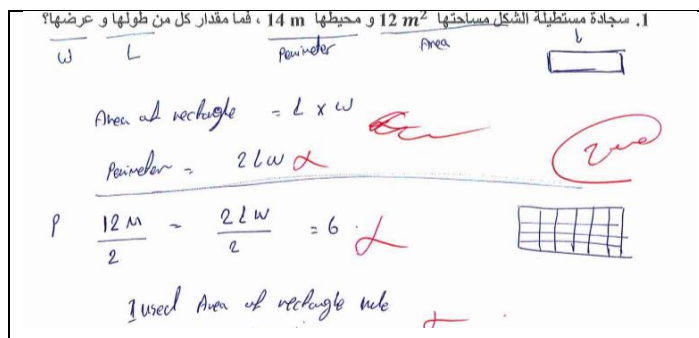 1. سجادة مستطيلة الشكل مساحتها 12 m² و محيطها 14 m ، فما مقدار كل من طولها و عرضها؟
W L Perimeter Area
Area of rectangle = L x W
Perimeter = 2LW
P 12 M / 2 = 2LW / 2 = 6
I used Area of rectangle rule